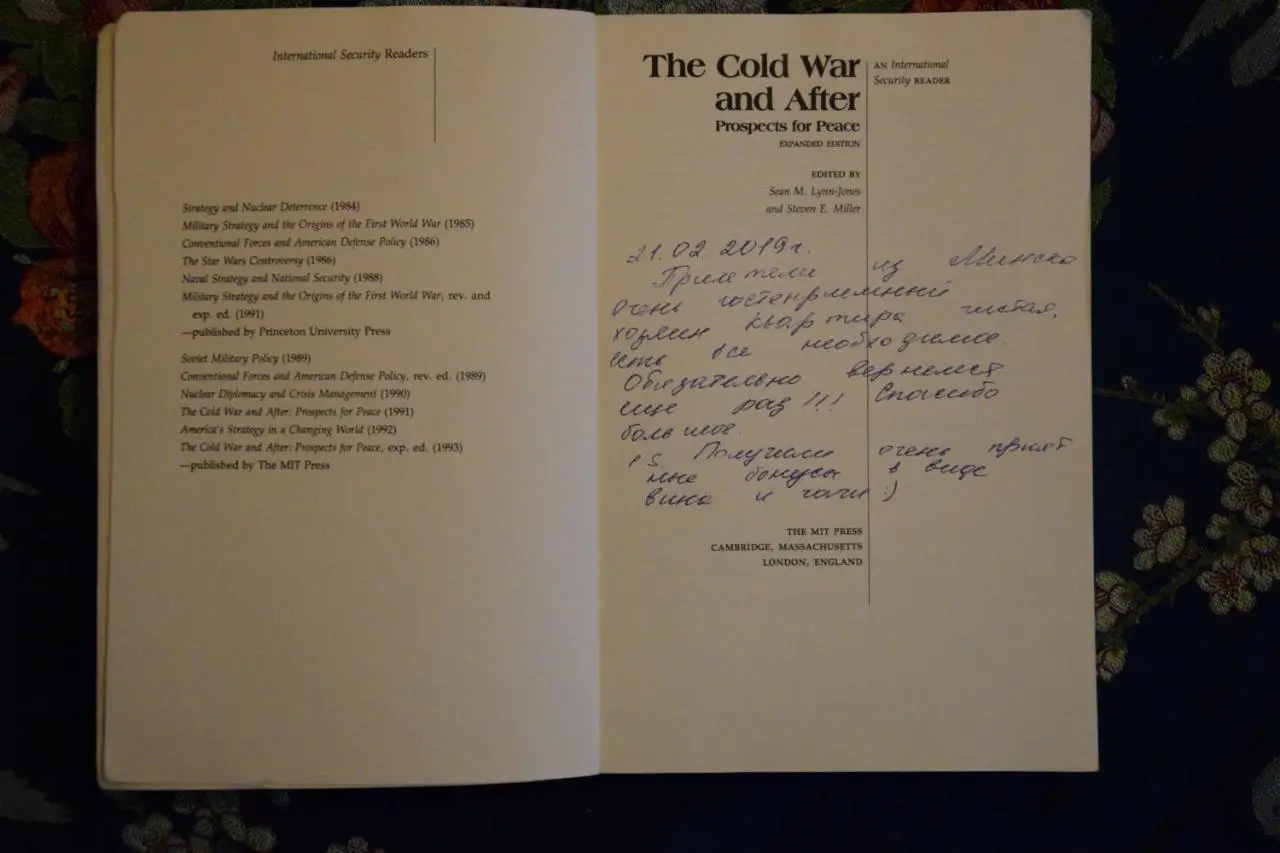 International Security Readers
Strategy and Nuclear Deterrence (1984)
Military Strategy and the Origins of the First World War (1985)
Conventional Forces and American Defense Policy (1986)
The Star Wars Controversy (1986)
Naval Strategy and National Security (1988)
Military Strategy and the Origins of the First World War, rev. and
exp. ed. (1991)
—published by Princeton University Press
Soviet Military Policy (1989)
Conventional Forces and American Defense Policy, rev. ed. (1989)
Nuclear Diplomacy and Crisis Management (1990)
The Cold War and After: Prospects for Peace (1991)
America's Strategy in a Changing World (1992)
The Cold War and After: Prospects for Peace, exp. ed. (1993)
—published by The MIT Press
The Cold War
and After
Prospects for Peace
EXPANDED EDITION
AN International
Security READER
EDITED BY
Sean M. Lynn-Jones
and Steven E. Miller
21.02 2019г.
Прилетели из Минска
очень гостеприемный
хозяин квартира чистая,
есть все необходимое.
Обязательно вернемся
еще раз!!! Спасибо
большое.
PS Получили очень прият
ные бонусы в виде
вина и чачи :)
THE MIT PRESS
CAMBRIDGE, MASSACHUSETTS
LONDON, ENGLAND